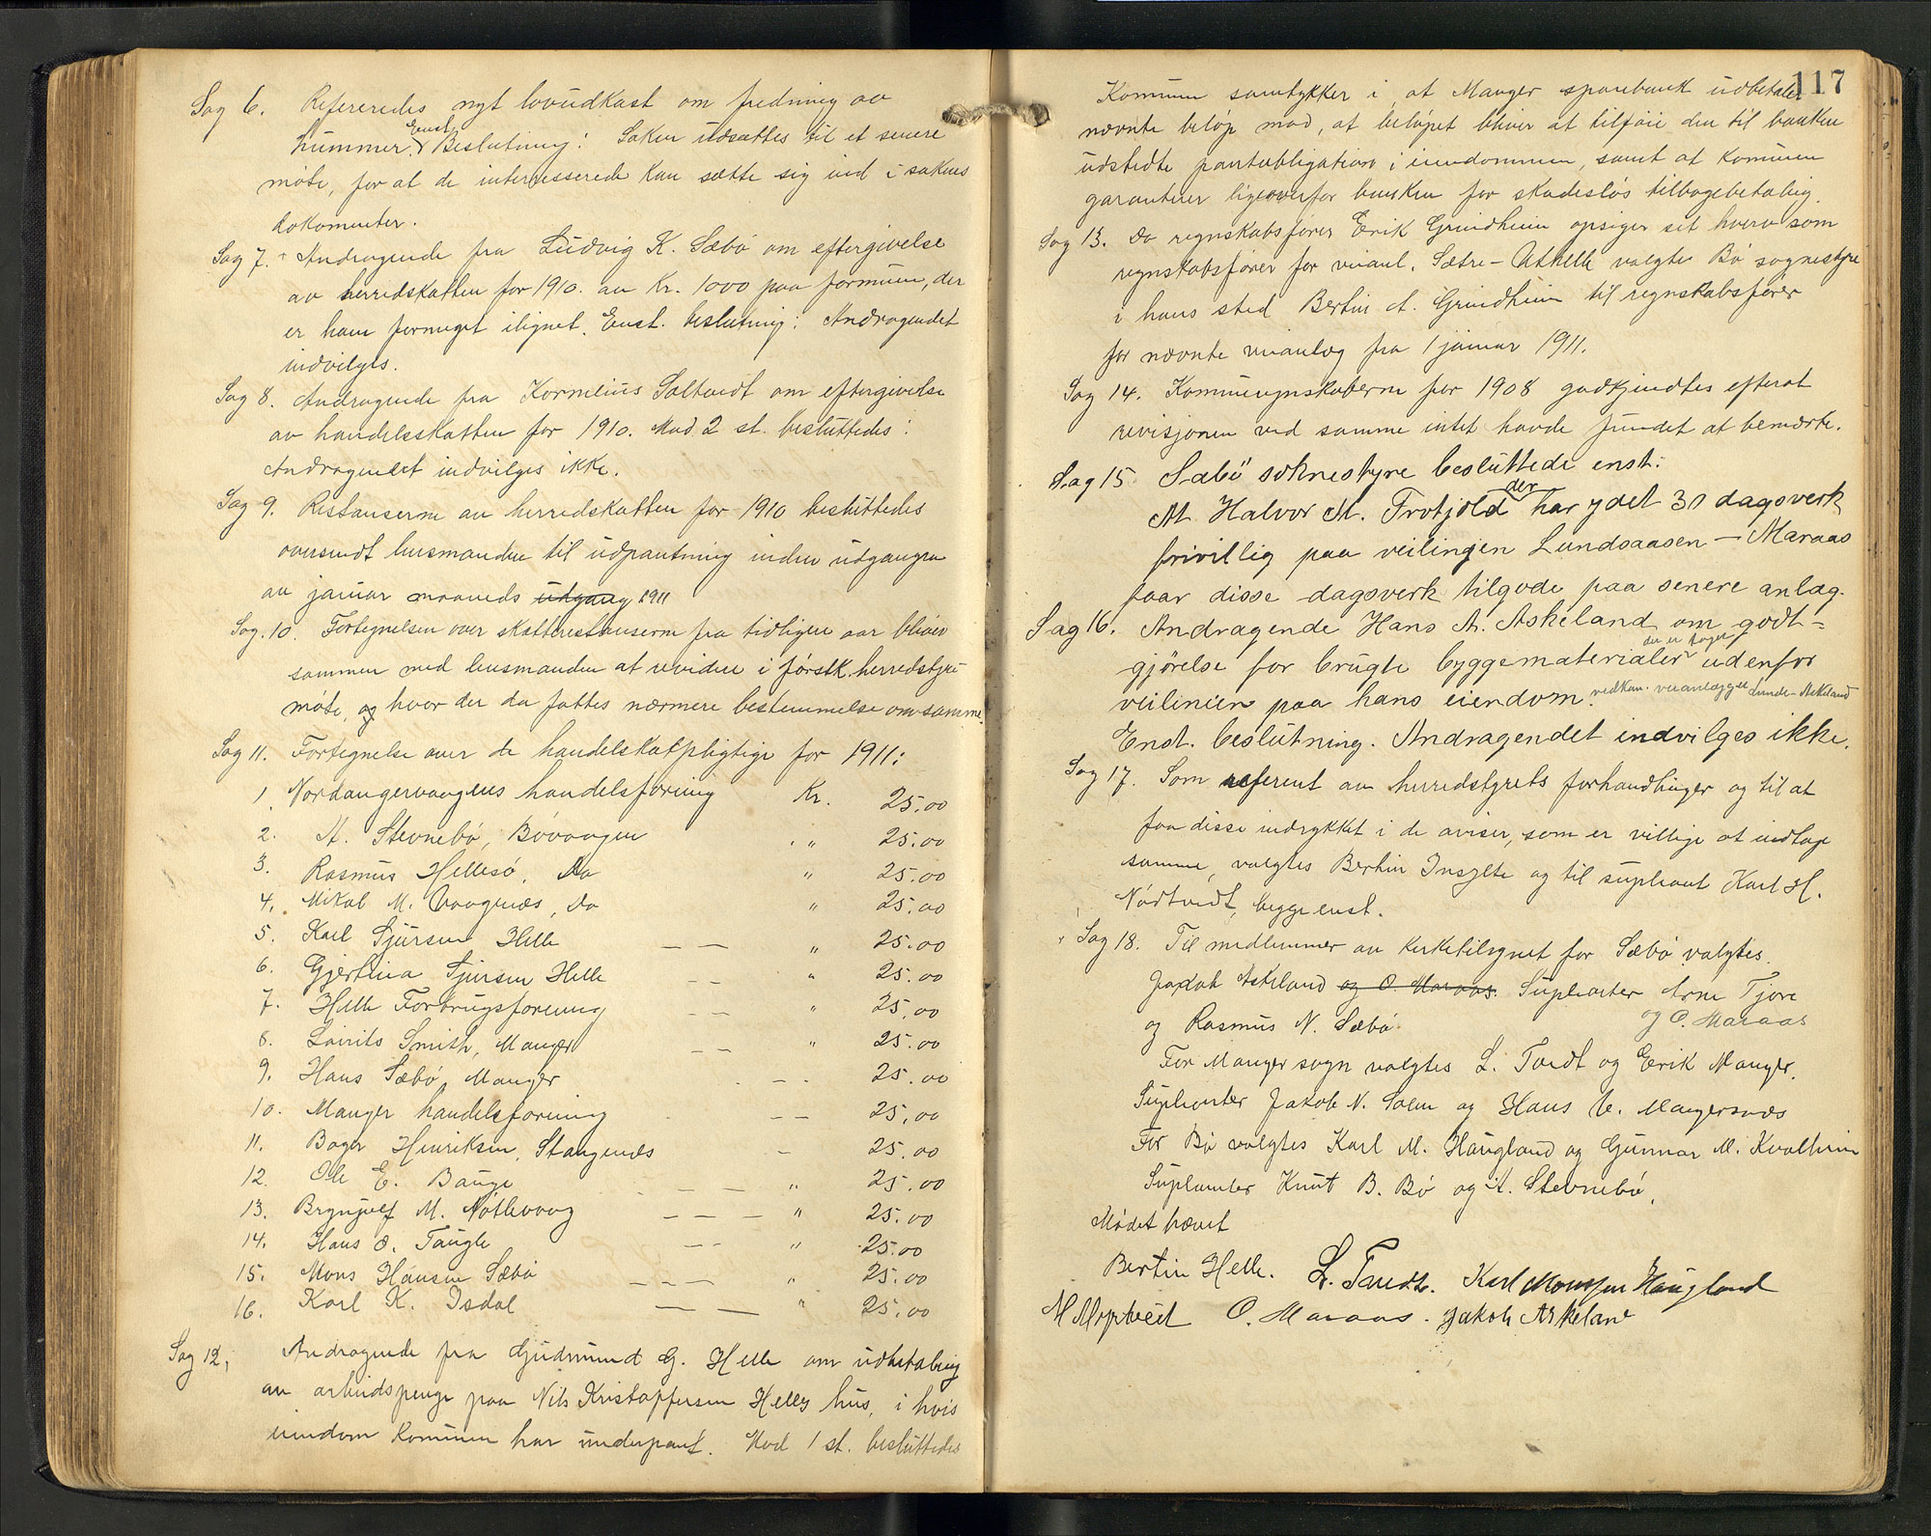 Sag 6. Refereredes nyt lovudkast om fredning av
hummer. Enst. Beslutning: Saken udsættes til et senere
møte, for at de interesserede kan sætte sig ind i sakens
dokumenter.
Sag 7. Andragende fra Ludvig K. Sæbø om eftergivelse
av herredskatten for 1910 av Kr. 1000 paa formuen, der
er ham formeget ilignet. Enst. beslutning: Andragendet
indvilges.
Sag 8. Andragende fra Kornelius Saltvedt om eftergivelse
av handelsskatten for 1910. Mod 2 st. besluttedes:
Andragendet indvilges ikke.
Sag 9. Restanserne av herredskatten for 1910 besluttedes
oversendt lensmanden til udpantning inden udgangen
av januar maaneds udgang 1911
Sag. 10. Fortegnelsen over skatterestanserne fra tidligere aar bliver
sammen med lensmanden at revidere i førstk. herredstyre-
møte, og hvor der da fattes nærmere bestemmelse om samme.
Sag 11. Fortegnelse over de handelskatpligtige for 1911:
1. Nordangervaagens handelsforening Kr. 25.00
2. A. Stevnebø, Bøvaagen " 25.00
3. Rasmus Hellesø, Do " 25.00
4. Mikal M. Vaagenes, Do " 25.00
5. Karl Sjursen Helle — — " 25.00
6. Gjertina Sjursen Helle — — " 25.00
7. Helle Forbrugsforening — — " 25.00
8. Laurits Smith, Manger — — " 25.00
9. Hans Sæbø, Manger — 25.00
10. Manger handelsforening — — 25.00
11. Boger Henriksen, Stangenes — 25.00
12. Ole E. Bauge — — " 25.00
13. Brynjulf M. Nøtlevaag — — — " 25.00
14. Hans O. Taugle — — " 25.00
15. Mons Hansen Sæbø — — — " 25.00
16. Karl K. Isdal — — " 25.00
Sag 12. Andragende fra Gudmund G. Helle om udbetaling
av arbeidspenge paa Nils Kristoffersen Helles hus, i hvis
eiendom Komunen har underpant. Mod 1 st. besluttedes
117
Komunen samtykker i at Manger sparebank udbetaler
nævnte beløp mod, at beløpet bliver at tilføie den til banken
udstedte pantobligation i eiendommen, samt at Komunen
garanterer ligeoverfor banken for skadesløs tilbagebetaling.
Sag 13. Da regnskabsfører Erik Grindheim opsiger sit hverv som
regnskabsfører for veianl. Sætre - Utkelle valgte Bø sognestyre
i hans sted Bertin A. Grindheim til regnskabsfører
for nævnte veianlæg fra 1 januar 1911.
Sag 14. Kommuneregnskaberne for 1908 godkjendtes efterat
revisjonen ved samme intet havde fundet at bemærke.
Sag 15. Sæbö soknestyre besluttede enst:
At Halvor M. Trotjold der har ydet 30 dagsverk
frivillig paa veilinjen Lundsaasen — Maraas
faar disse dagsverk tilgode paa senere anlæg.
Sag 16. Andragende Hans A. Askeland om godt-
gjørelse for brugte byggematerialer der er tagen udenfor
veilinien paa hans eiendom. vedkom. veianlægget Lunde - Askeland
Enst. beslutning. Andragendet indvilges ikke.
Sag 17. Som referent av herredstyrets forhandlinger og til at
faa disse indrykket i de aviser, som er villige at indtage
samme, valgtes Bertin Insylte og til supleant Karl H.
Nødtvedt, begge enst.
Sag 18. Til medlemmer av kirketilsynet for Sæbø valgtes.
Jakob Askeland og O. Maraas. Supleanter Arne Tjore
og Rasmus N. Sæbø. og O. Maraas
For Manger sogn valgtes L. Tvedt og Erik Manger.
Supleanter Jakob N. Solem og Hans A. Mangersnes
For Bø valgtes Karl M. Haugland og Gunnar M. Kvalheim
Supleanter Knut B. Bø og A. Stevnebø.
Mødet hævet
Bertin Helle. L. Tvedt. Karl Monssen Haugland
O. Maraas. Jakob Askeland